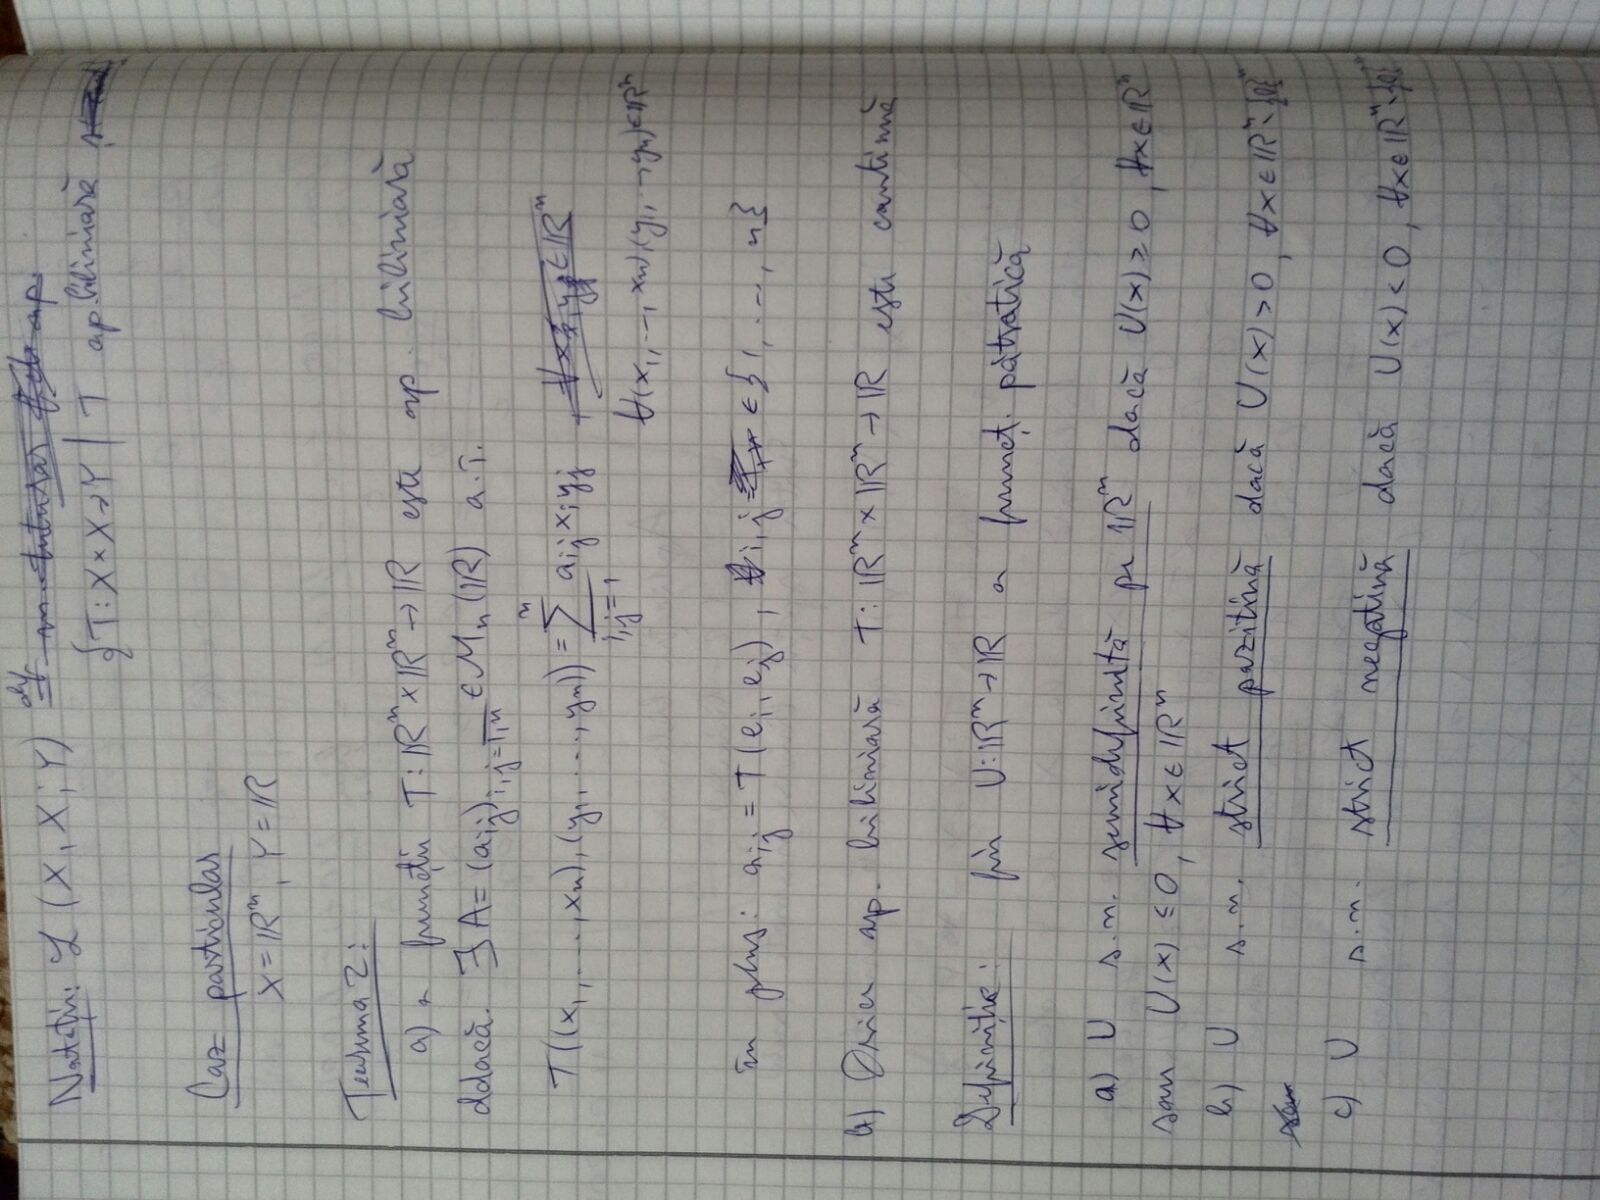 Notație: L(X, X; Y) def
{T: X × X → Y | T ap. biliniară
Caz particular
X = ℝⁿ, Y = ℝ
Teorema 2:
a) o funcție T: ℝⁿ × ℝⁿ → ℝ este ap. biliniară
ddacă ∃ A = (aij)i,j=1,n ∈ Mn(ℝ) a.î.
T((x1, ..., xn), (y1, ..., yn)) = ∑ⁿi,j=1 aij xi yj
∀(x1, ..., xn), (y1, ..., yn) ∈ ℝⁿ
în plus: aij = T(ei, ej), ∀i,j ∈ {1, ..., n}
b) Orice ap. biliniară T: ℝⁿ × ℝⁿ → ℝ este continuă
Definiție: fie U: ℝⁿ → ℝ o funcț. pătratică
a) U s.n. semidefinită pe ℝⁿ dacă U(x) ≥ 0, ∀x ∈ ℝⁿ
sau U(x) ≤ 0, ∀x ∈ ℝⁿ
b) U s.n. strict pozitivă dacă U(x) > 0, ∀x ∈ ℝⁿ\{0}
c) U s.n. strict negativă dacă U(x) < 0, ∀x ∈ ℝⁿ\{0}